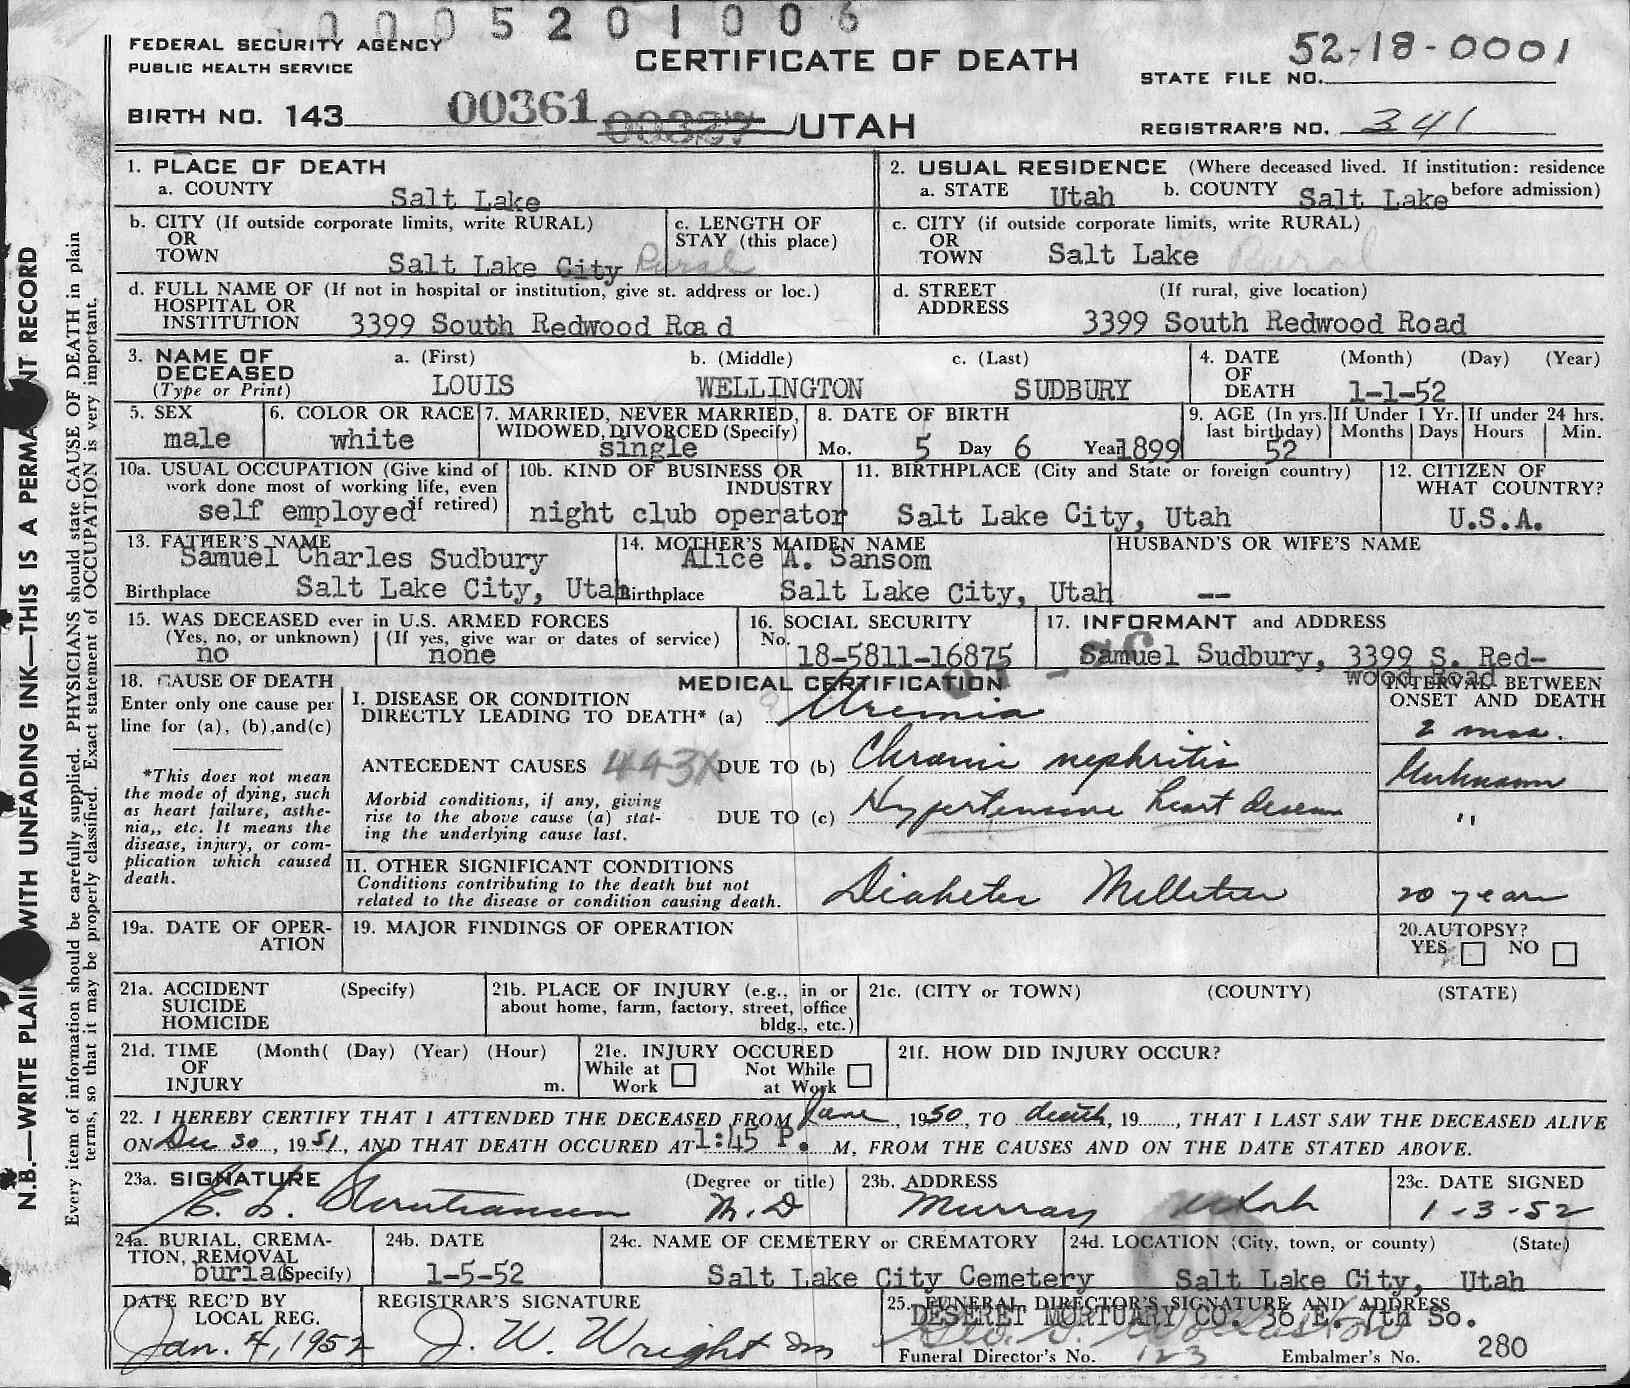 0005201006
FEDERAL SECURITY AGENCY
PUBLIC HEALTH SERVICE
CERTIFICATE OF DEATH
52-18-0001
STATE FILE NO.
BIRTH NO. 143 00361 UTAH
REGISTRAR'S NO. 341
1. PLACE OF DEATH
a. COUNTY
Salt Lake
2. USUAL RESIDENCE (Where deceased lived. If institution: residence
before admission)
a. STATE Utah b. COUNTY Salt Lake
b. CITY (If outside corporate limits, write RURAL)
OR
TOWN
Salt Lake City Rural
c. LENGTH OF
STAY (this place)
c. CITY (if outside corporate limits, write RURAL)
OR
TOWN
Salt Lake Rural
d. FULL NAME OF (If not in hospital or institution, give st. address or loc.)
HOSPITAL OR
INSTITUTION 3399 South Redwood Road
d. STREET (If rural, give location)
ADDRESS
3399 South Redwood Road
3. NAME OF
DECEASED
(Type or Print)
a. (First) b. (Middle) c. (Last)
LOUIS WELLINGTON SUDBURY
4. DATE (Month) (Day) (Year)
OF
DEATH 1-1-52
5. SEX
male
6. COLOR OR RACE
white
7. MARRIED, NEVER MARRIED,
WIDOWED, DIVORCED (Specify)
single
8. DATE OF BIRTH
Mo. 5 Day 6 Year 1899
9. AGE (In yrs.
last birthday)
52
If Under 1 Yr.
Months Days
If under 24 hrs.
Hours Min.
10a. USUAL OCCUPATION (Give kind of
work done most of working life, even
if retired)
self employed
10b. KIND OF BUSINESS OR
INDUSTRY
night club operator
11. BIRTHPLACE (City and State or foreign country)
Salt Lake City, Utah
12. CITIZEN OF
WHAT COUNTRY?
U.S.A.
13. FATHER'S NAME
Samuel Charles Sudbury
Birthplace Salt Lake City, Utah
14. MOTHER'S MAIDEN NAME
Alice A. Sansom
Birthplace Salt Lake City, Utah
HUSBAND'S OR WIFE'S NAME
--
15. WAS DECEASED ever in U.S. ARMED FORCES
(Yes, no, or unknown) (If yes, give war or dates of service)
no none
16. SOCIAL SECURITY
No.
18-5811-16875
17. INFORMANT and ADDRESS
Samuel Sudbury, 3399 S. Red-
wood Road
18. CAUSE OF DEATH
Enter only one cause per
line for (a), (b),and(c)
*This does not mean
the mode of dying, such
as heart failure, asthe-
nia,, etc. It means the
disease, injury, or com-
plication which caused
death.
MEDICAL CERTIFICATION
INTERVAL BETWEEN
ONSET AND DEATH
I. DISEASE OR CONDITION
DIRECTLY LEADING TO DEATH* (a) Uremia
2 mos.
ANTECEDENT CAUSES 443X DUE TO (b) Chronic nephritis
Unknown
Morbid conditions, if any, giving
rise to the above cause (a) stat-
ing the underlying cause last.
DUE TO (c) Hypertensive heart disease
"
II. OTHER SIGNIFICANT CONDITIONS
Conditions contributing to the death but not
related to the disease or condition causing death.
Diabetes Mellitus
20 years
19a. DATE OF OPER-
ATION
19. MAJOR FINDINGS OF OPERATION
20.AUTOPSY?
YES NO
21a. ACCIDENT (Specify)
SUICIDE
HOMICIDE
21b. PLACE OF INJURY (e.g., in or
about home, farm, factory, street, office
bldg., etc.)
21c. (CITY or TOWN) (COUNTY) (STATE)
21d. TIME (Month( (Day) (Year) (Hour)
OF
INJURY m.
21e. INJURY OCCURED
While at Work Not While at Work
21f. HOW DID INJURY OCCUR?
22. I HEREBY CERTIFY THAT I ATTENDED THE DECEASED FROM June, 1950, TO death, 19......., THAT I LAST SAW THE DECEASED ALIVE
ON Dec 30, 1951, AND THAT DEATH OCCURED AT 1:45 P. M, FROM THE CAUSES AND ON THE DATE STATED ABOVE.
23a. SIGNATURE (Degree or title)
E. L. Christiansen M.D
23b. ADDRESS
Murray Utah
23c. DATE SIGNED
1-3-52
24a. BURIAL, CREMA-
TION, REMOVAL
burial (Specify)
24b. DATE
1-5-52
24c. NAME OF CEMETERY or CREMATORY
Salt Lake City Cemetery
24d. LOCATION (City, town, or county) (State)
Salt Lake City, Utah
DATE REC'D BY
LOCAL REG.
Jan. 4, 1952
REGISTRAR'S SIGNATURE
J. W. Wright
25. FUNERAL DIRECTOR'S SIGNATURE AND ADDRESS
DESERET MORTUARY CO. 36 E. 7th So.
Funeral Director's No. 123 Embalmer's No. 280
N.B.—WRITE PLAINLY WITH UNFADING INK—THIS IS A PERMANENT RECORD
Every item of information should be carefully supplied. PHYSICIANS should state CAUSE OF DEATH in plain
terms, so that it may be properly classified. Exact statement of OCCUPATION is very important.